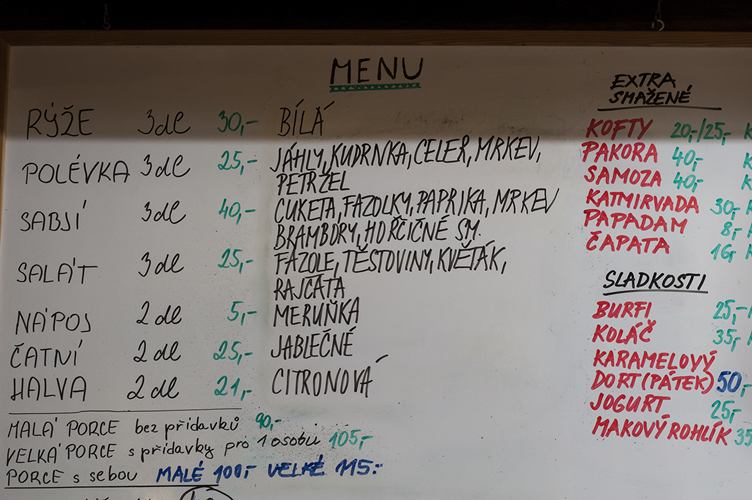 MENU
RÝŽE 3dl 30,- BÍLÁ
POLÉVKA 3dl 25,- JÁHLY, KUDRNKA, CELER, MRKEV,
PETRŽEL
SABJÍ 3dl 40,- CUKETA, FAZOLKY, PAPRIKA, MRKEV
BRAMBORY, HOŘČIČNÉ SM.
SALÁT 3dl 25,- FAZOLE, TĚSTOVINY, KVĚTÁK,
RAJČATA
NÁPOJ 2dl 5,- MERUŇKA
ČATNÍ 2dl 25,- JABLEČNÉ
HALVA 2dl 21,- CITRONOVÁ
MALÁ PORCE bez přídavků 90,-
VELKÁ PORCE s přídavky pro 1 osobu 105,-
PORCE s sebou MALÉ 100,- VELKÉ 115,-
EXTRA
SMAŽENÉ
KOFTY 20,-/25,-
PAKORA 40,-
SAMOZA 40,-
KATMIRVADA 30,-
PAPADAM 8,-
ČAPATA 16,-
SLADKOSTI
BURFI 25,-
KOLÁČ 35,-
KARAMELOVÝ
DORT (PÁTEK) 50,-
JOGURT 25,-
MAKOVÝ ROHLÍK 35